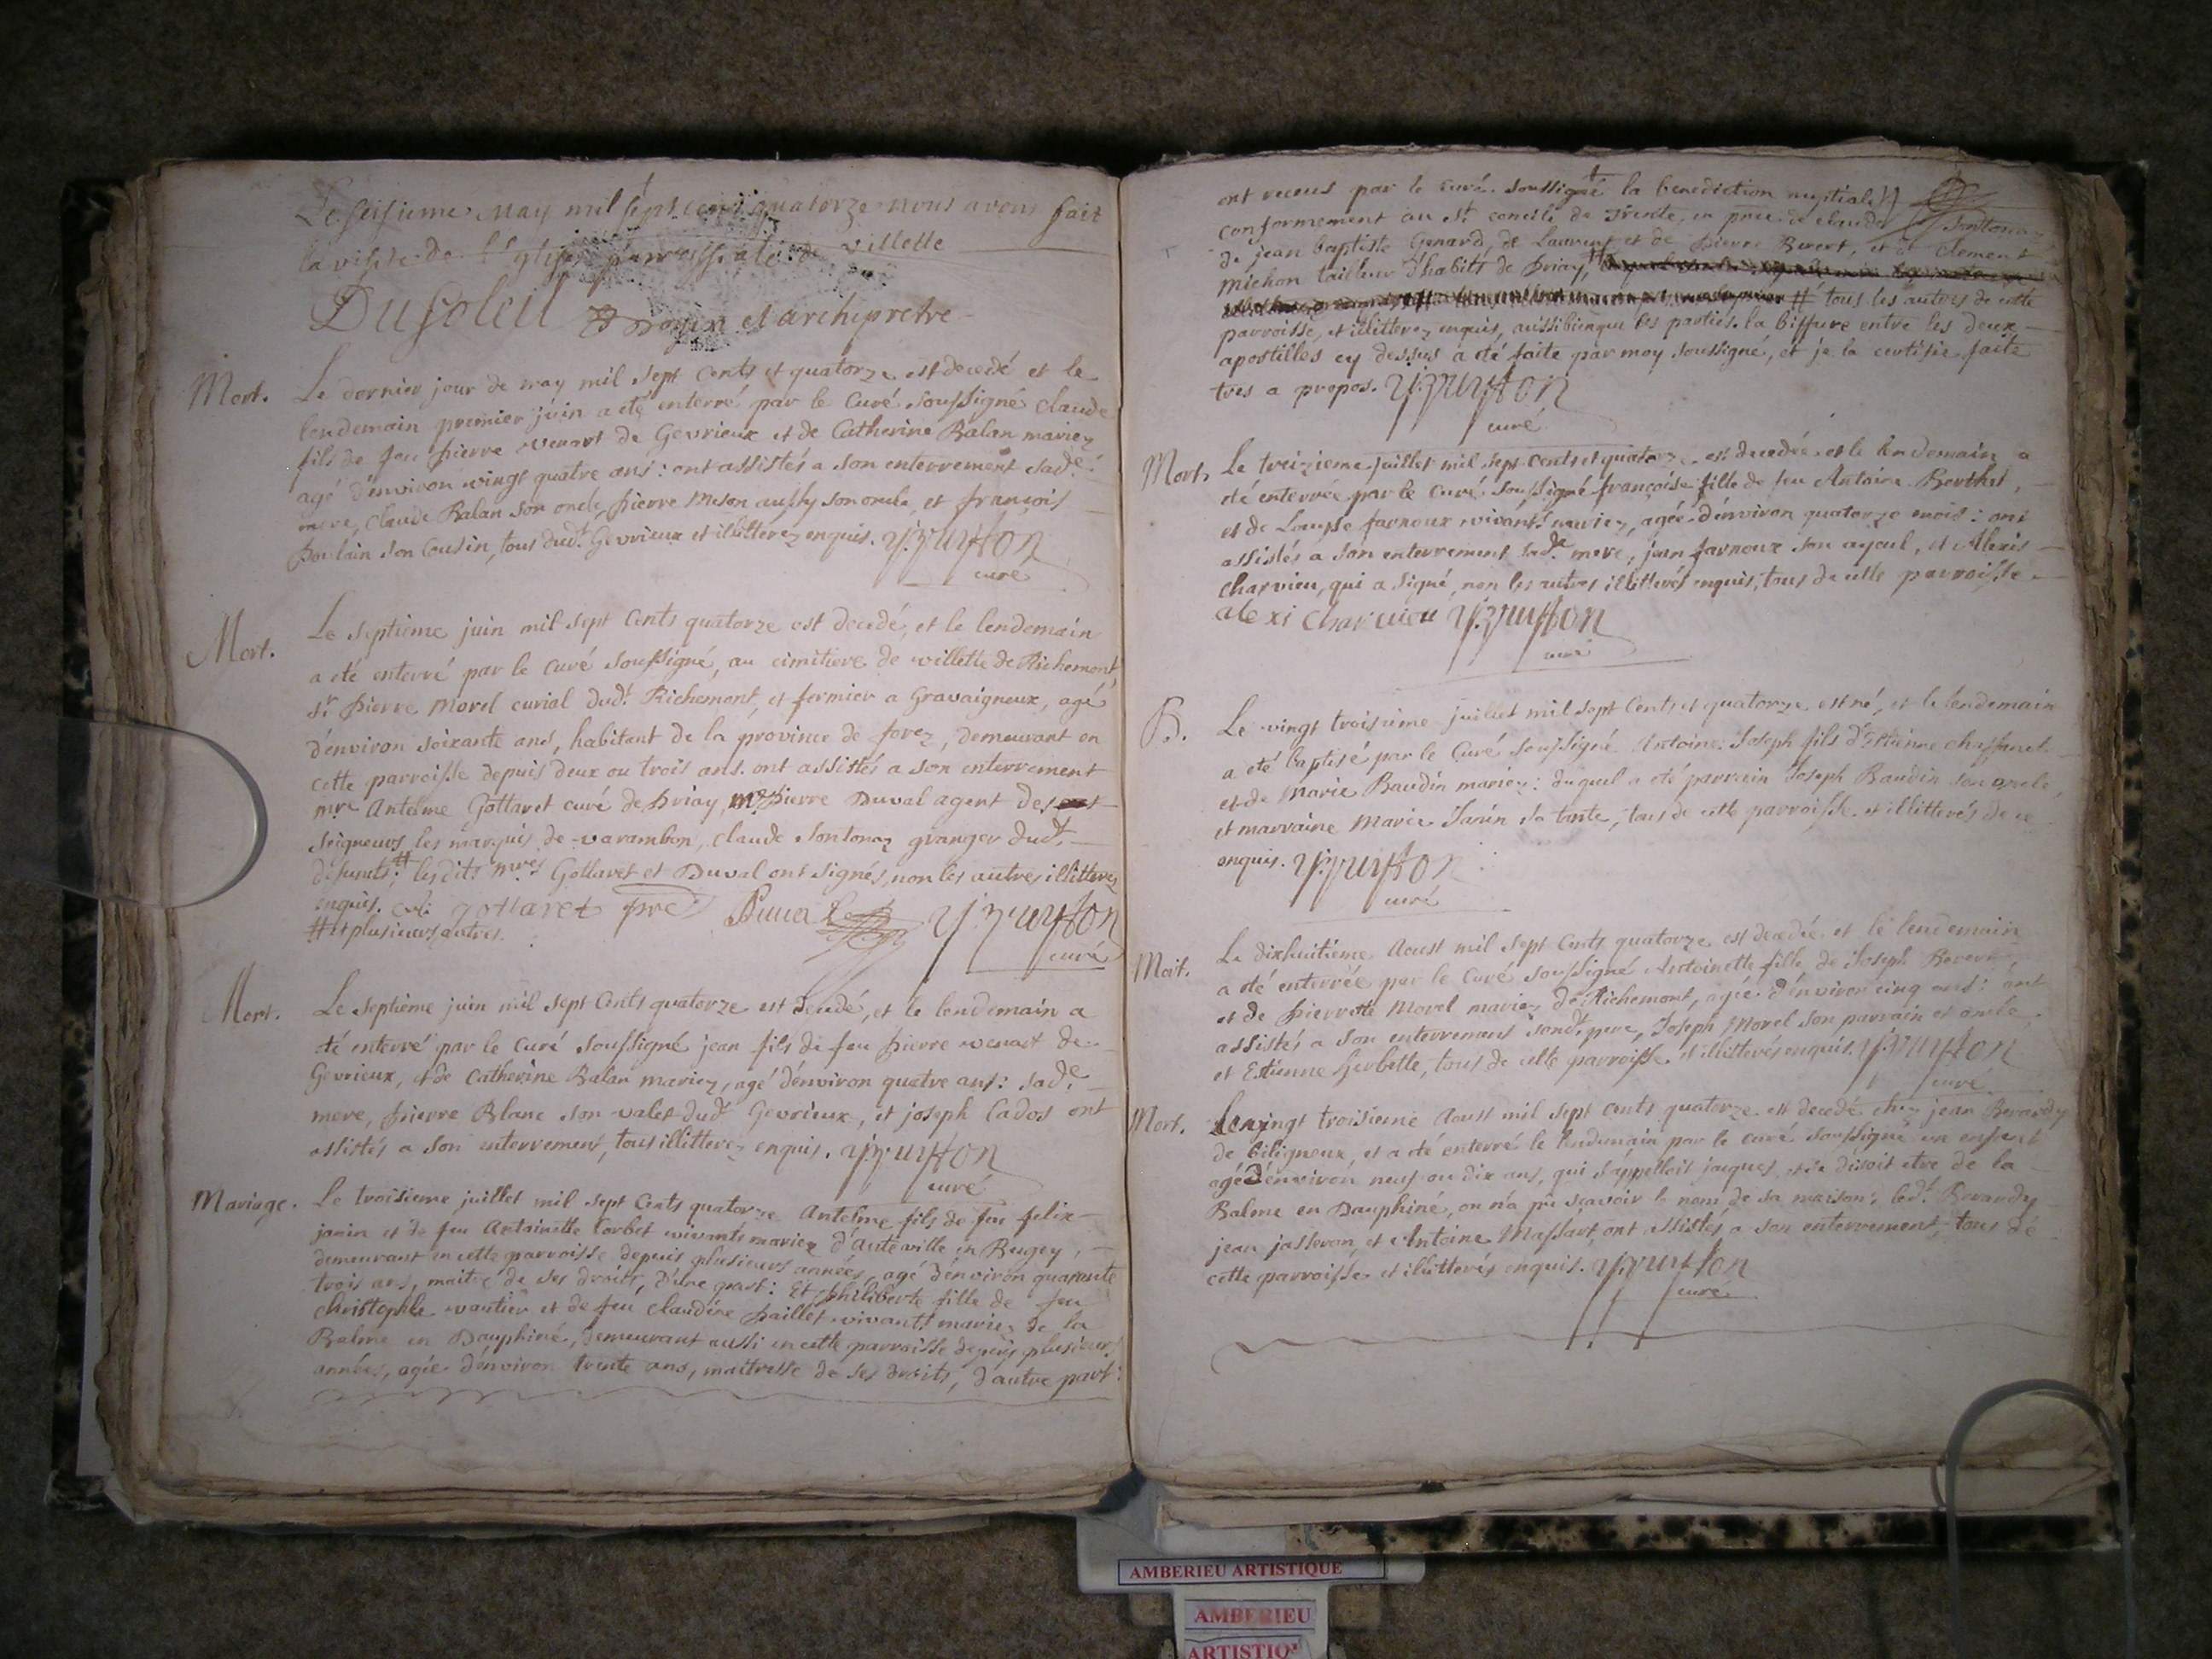 Le seisieme May mil sept cens quatorze nous avons fait
la visite de l'eglise parroissiale de villette
Dusoleil Doyen et archipretre
Mort. Le dernier jour de may mil sept cents et quatorze est decedé et le
lendemain premier juin a eté enterré par le Curé soussigné Claude
fils de feu pierre venart de Gevrieux et de Catherine Balan mariez
agé d'environ vingt quatre ans : ont assistés a son enterrement sad.e
mere, Claude Balan son oncle, pierre Meson aussy son oncle, et françois
poulain son Cousin, tous dud.t Gevrieux et illitterez enquis.
curé
Mort. Le septième juin mil sept Cents quatorze est decedé, et le lendemain
a eté enterré par le Curé soussigné, au cimitiere de villette de Richemont,
s.r pierre Morel curial dud.t Richemont, et fermier a Gravaigneux, agé
d'environ soixante ans, habitant de la province de forez, demeurant en
cette parroisse depuis deux ou trois ans. ont assistés a son enterrement
m.re Antelme Gottaret curé de priay, M.e pierre Duval agent des
seigneurs les marquis de varambon, Claude Sontonaz granger dud.t
defunct #, les dits m.res Gottaret et Duval ont signés, non les autres illitterez
enquis. gottaret Duval
# et plusieurs autres.
curé
Mort. Le septième juin mil sept Cents quatorze est decedé, et le lendemain a
eté enterré par le Curé soussigné jean fils de feu pierre venart de
Gevrieux, et de Catherine Balan mariez, agé d'environ quatre ans : sad.e
mere, pierre Blanc son valet dud.t Gevrieux, et joseph Cados ont
assistés a son enterrement, tous illitterez enquis.
curé
Mariage. Le troisieme juillet mil sept Cents quatorze Antelme fils de feu felix
janin et de feu Antoinette Corbet vivants mariez d'auteville en Bugey,
demeurant en cette parroisse depuis plusieurs années, agé d'environ quarante
trois ans, maitre de ses droits, d'une part : Et philiberte fille de feu
christophle vautier et de feu claudine paillet vivants mariez de la
Balme en Dauphiné, demeurant aussi en cette parroisse depuis plusieurs
années, agée d'environ trente ans, maitresse de ses droits, d'autre part :
ont receus par le curé soussigné la benediction nuptiale
conformement au s.t concile de Trente, en pnce de claude Sontonaz
de jean baptiste Genard, de Laurent et de pierre Berert, et de Clement
michon tailleur d'habits de priay, #
# tous les autres de cette
parroisse, et illitterez enquis, aussi bien que les parties. la biffure entre les deux
apostilles cy dessus a eté faite par moy soussigné, et je la certifie faite
tres a propos.
curé
Mort. Le treizieme juillet mil sept Cents et quatorze est decedée et le lendemain a
eté enterrée par le Curé soussigné françoise fille de feu Antoine Berthet,
et de Louyse farnoux vivants mariez, agée d'environ quatorze mois : ont
assistés a son enterrement sad.e mere, jean farnoux son ayeul, et Alexis
charvieu, qui a signé, non les autres illitterés enquis, tous de cette parroisse.
alexi charvieu
curé
B. Le vingt troisieme juillet mil sept Cents et quatorze est né, et le lendemain
a eté baptisé par le Curé soussigné Antoine Joseph fils d'Estienne chassanel
et de Marie Baudin mariez : duquel a eté parrain Joseph Baudin son oncle,
et marraine Marie Janin sa tante, tous de cette parroisse et illitterés de ce
enquis.
curé
Mort. Le dixhuitieme Aoust mil sept Cents quatorze est decedée et le lendemain
a eté enterrée par le Curé soussigné Antoinette fille de Joseph
et de pierrette Morel mariez de Richemont, agée d'environ cinq ans : ont
assistés a son enterrement sond.t pere, Joseph Morel son parrain et oncle
et Estienne herbette, tous de cette parroisse et illitterés enquis.
curé
Mort. Le vingt troisieme Aoust mil sept cents quatorze est decedé chez jean Berardy
de biligneux, et a eté enterré le lendemain par le curé soussigné un enfant
agé d'environ neuf ou dix ans, qui s'appelloit jacques, et se disoit etre de la
Balme en Dauphiné, on n'a pu sçavoir le nom de sa maison : led.t Berardy
jean jasseron, et Antoine Massart ont assistés a son enterrement, tous de
cette parroisse et illitterés enquis.
curé
AMBERIEU ARTISTIQUE
AMBERIEU
ARTISTIQ